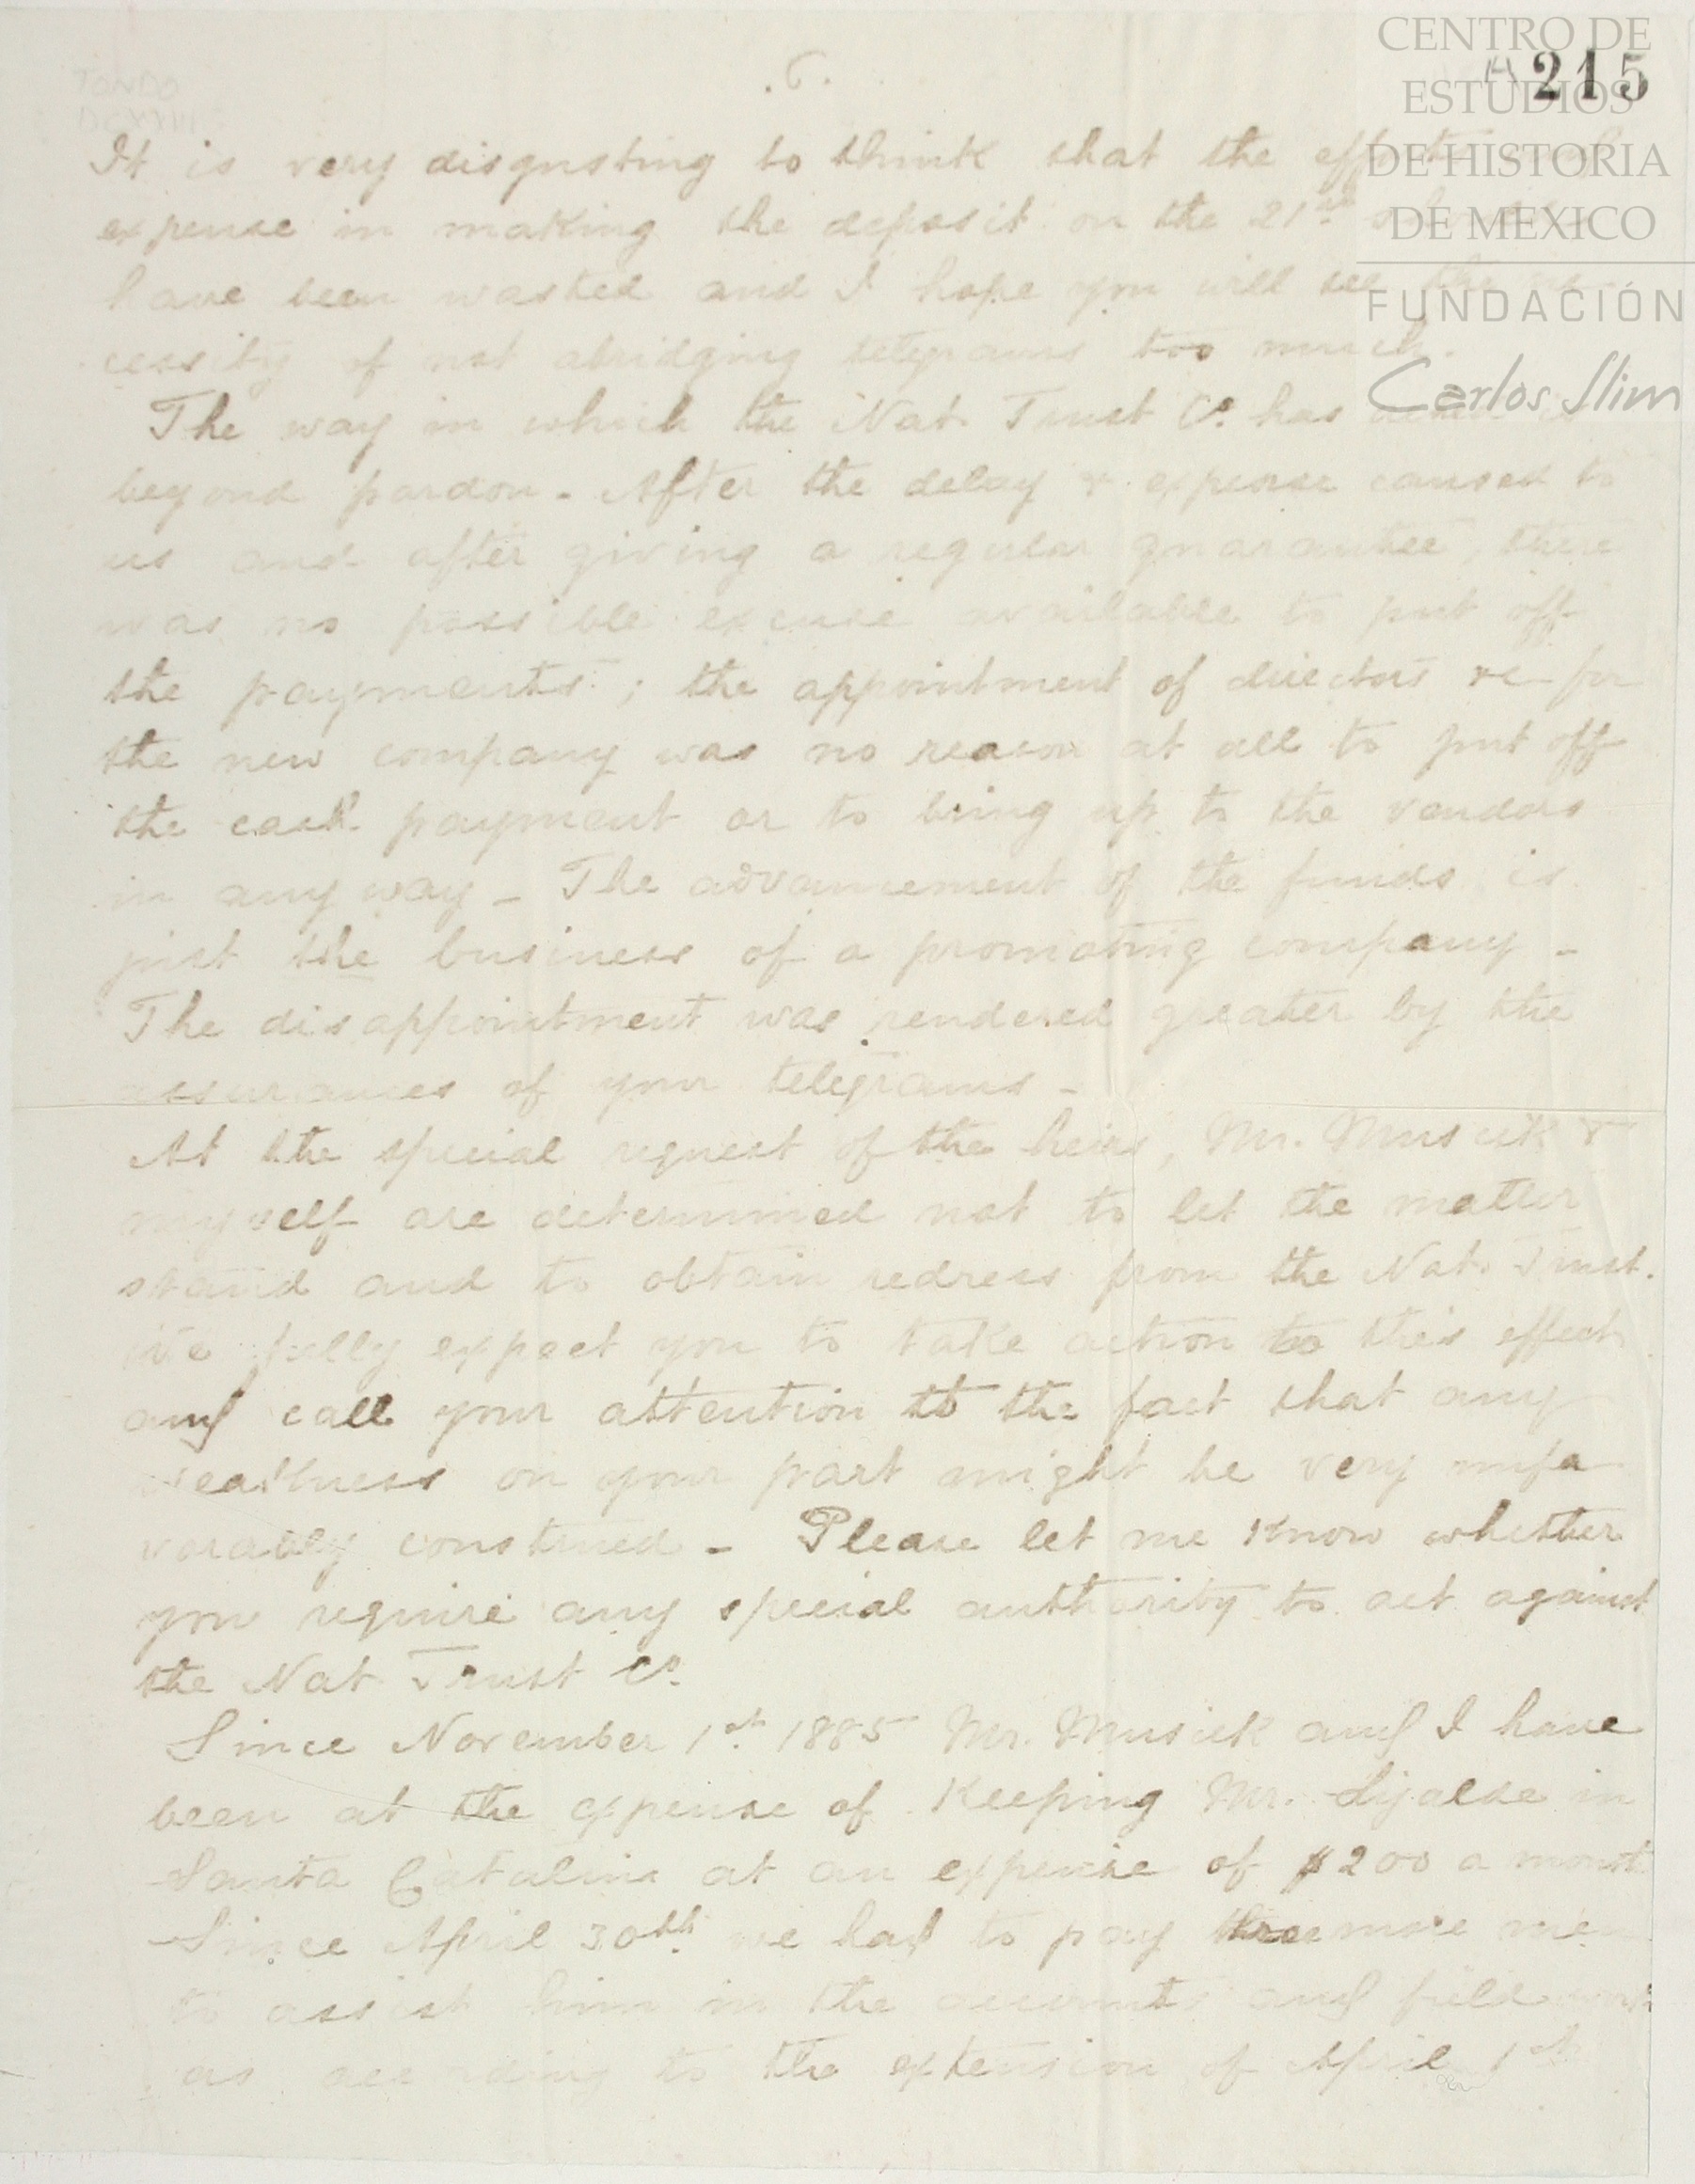 CENTRO DE
ESTUDIOS
DE HISTORIA
DE MEXICO
FUNDACIÓN
Carlos Slim
215
FONDO
DCXXIII
.6.
It is very disgusting to think that the efforts and
expense in making the deposit on the 21st
have been wasted and I hope you will see the ne-
cessity of not abridging telegrams too much.
The way in which the Nat. Trust Co. has
beyond pardon - After the delay & expense caused to
us and after giving a regular guarantee, there
was no possible excuse available to put off
the payments; the appointment of directors re for
the new company was no reason at all to put off
the cash payment or to bring up to the vendors
in any way - The advancement of the funds is
just the business of a promoting company -
The disappointment was rendered greater by the
assurances of your telegrams -
At the special request of the heirs, Mr. Musick &
myself are determined not to let the matter
stand and to obtain redress from the Nat. Trust.
We fully expect you to take action to this effect
and call your attention to the fact that any
weakness on your part might be very unfa-
vorably construed - Please let me know whether
you require any special authority to act against
the Nat. Trust Co.
Since November 1st 1885 Mr. Musick and I have
been at the expense of keeping Mr. in
Santa Catalina at an expense of $200 a month
Since April 30th we had to pay three more men
to assist him in the accounts and field work
as according to the extension of April 1st